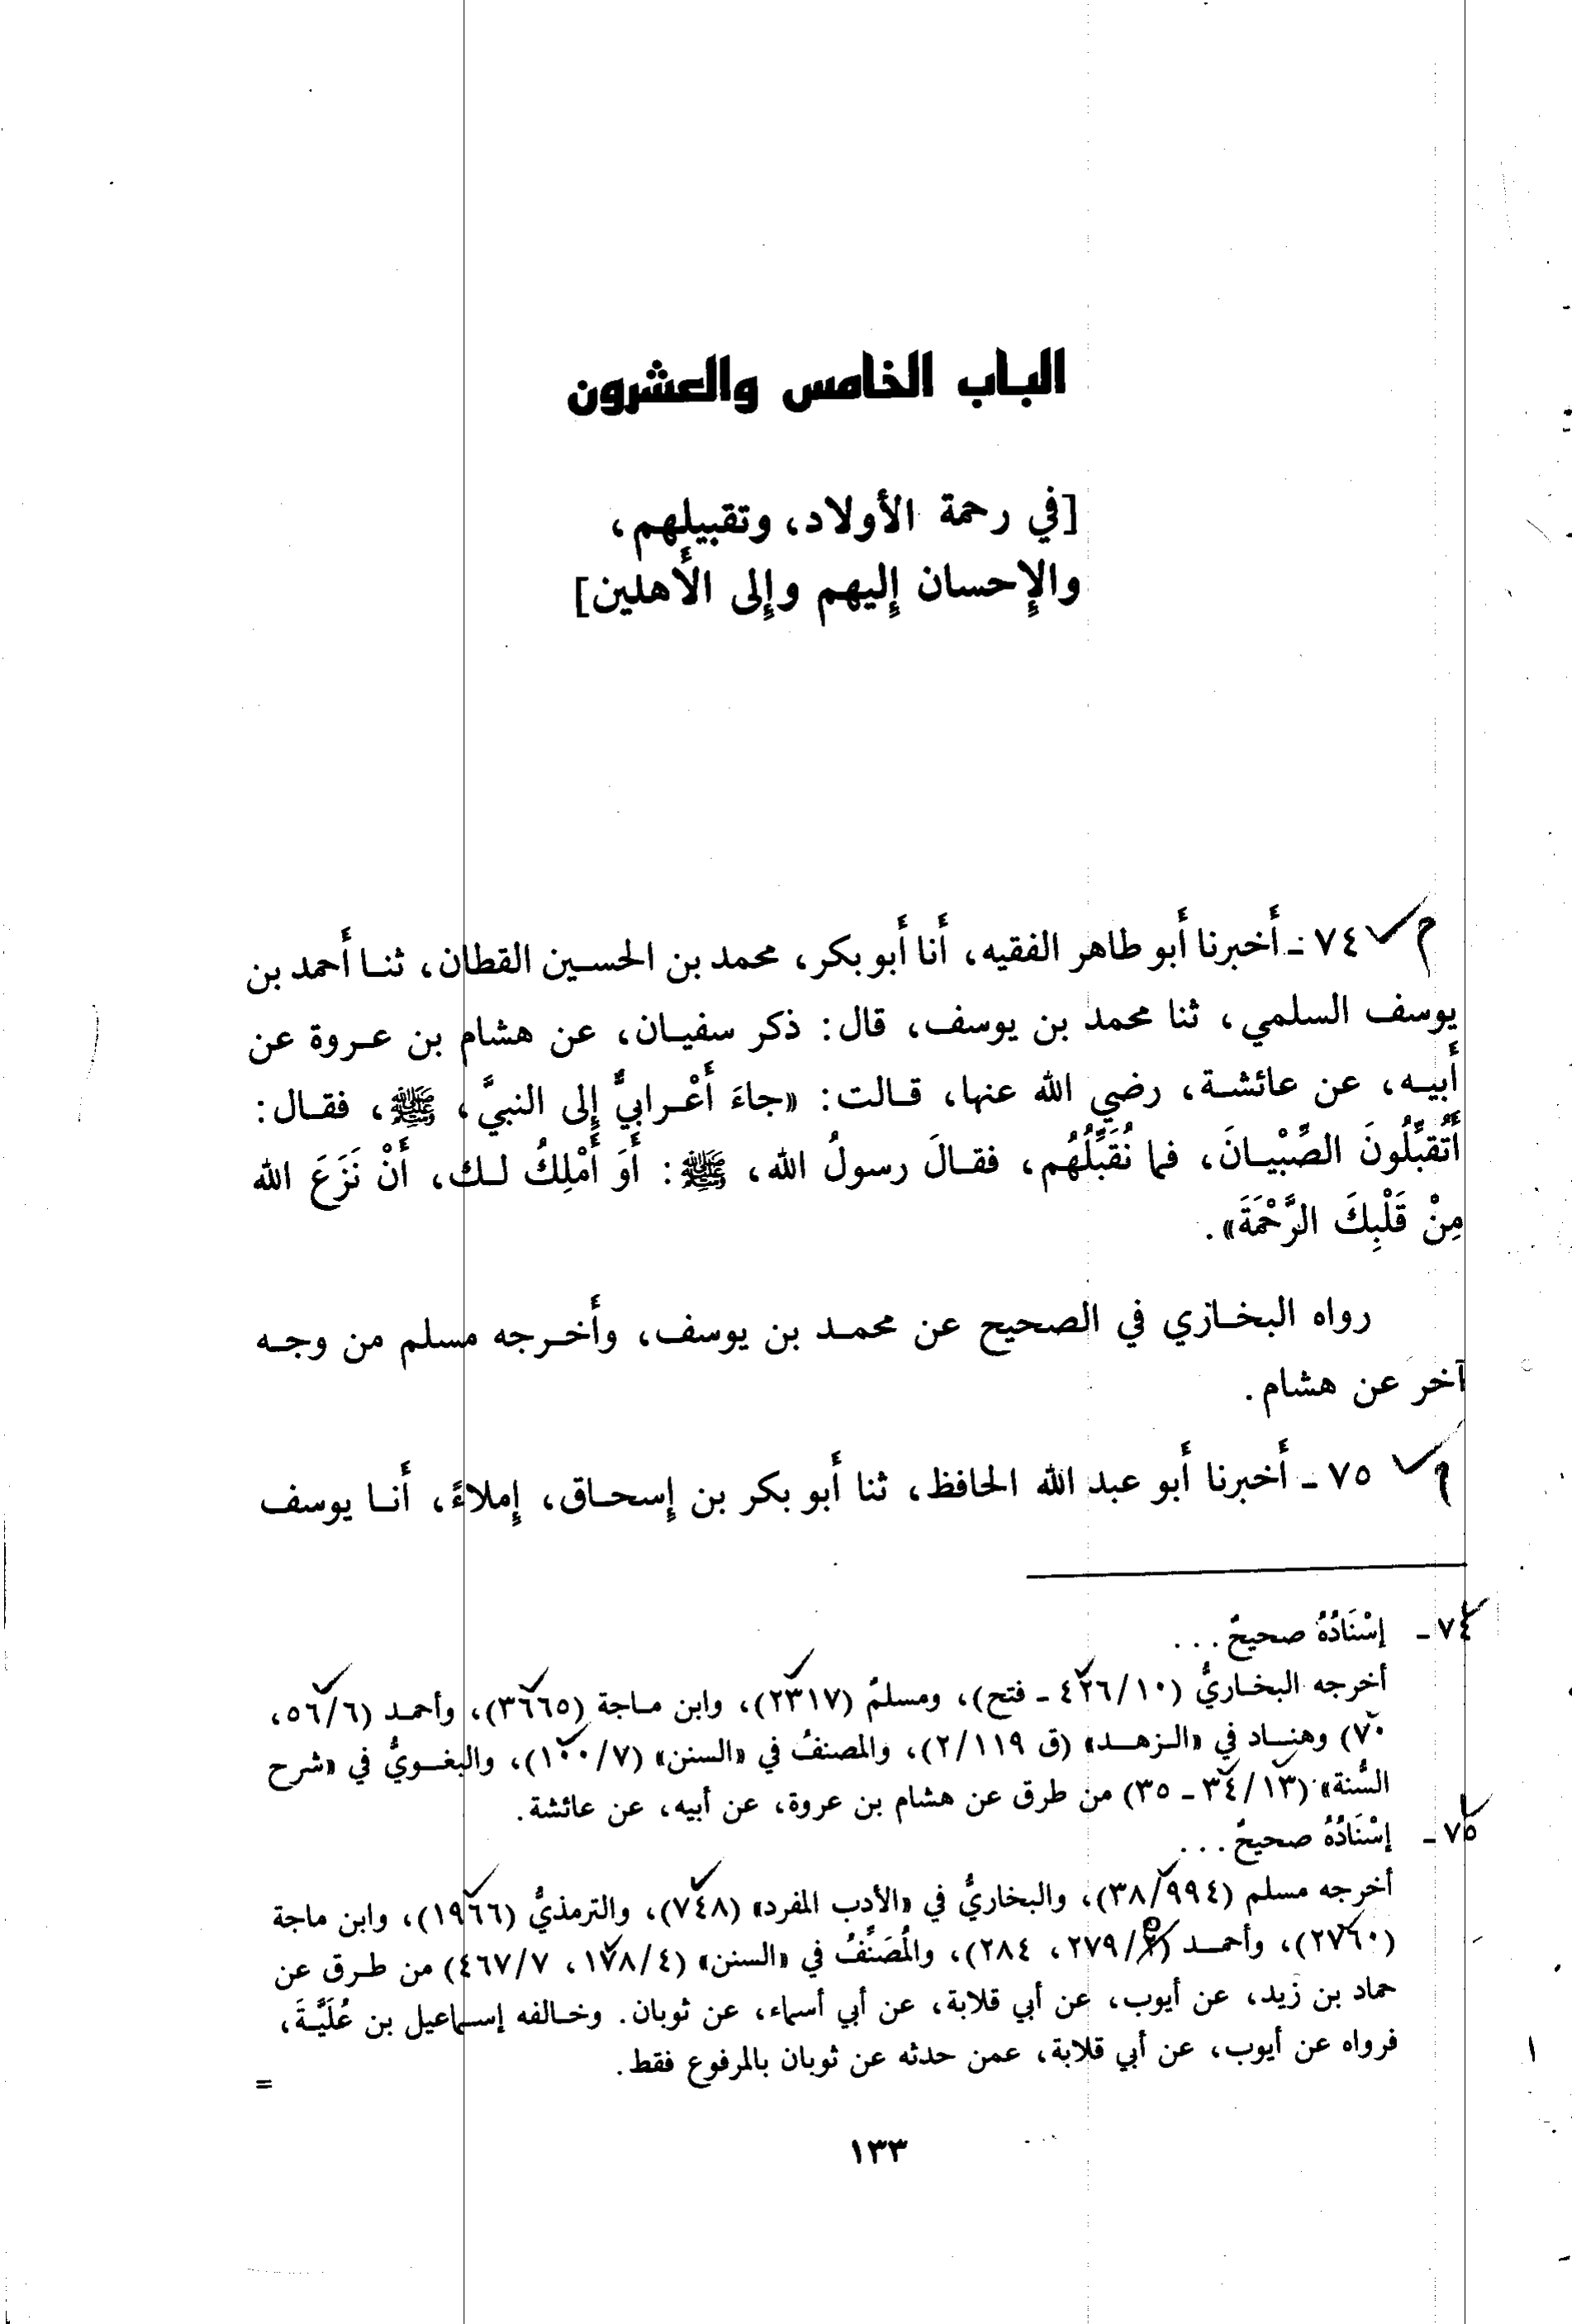 الباب الخامس والعشرون
[في رحمة الأولاد، وتقبيلهم،
والإحسان إليهم وإلى الأهلين]
م ٧٤ - أخبرنا أبو طاهر الفقيه، أنا أبو بكر، محمد بن الحسين القطان، ثنا أحمد بن
يوسف السلمي، ثنا محمد بن يوسف، قال: ذكر سفيان، عن هشام بن عروة عن
أبيه، عن عائشة، رضي الله عنها، قالت: «جاءَ أَعْرابيٌّ إلى النبيَّ، ﷺ، فقال:
أَتُقبِّلُونَ الصِّبْيانَ، فما نُقَبِّلُهُم، فقالَ رسولُ الله، ﷺ: أَوَ أَمْلِكُ لك، أَنْ نَزَعَ الله
مِنْ قَلْبِكَ الرَّحْمَةَ».
رواه البخاري في الصحيح عن محمد بن يوسف، وأخرجه مسلم من وجه
آخر عن هشام.
م ٧٥ - أخبرنا أبو عبد الله الحافظ، ثنا أبو بكر بن إسحاق، إملاءً، أنا يوسف
٧٤ - إسْنَادُهُ صحيحٌ...
أخرجه البخاريُّ (٤٢٦/١٠ - فتح)، ومسلمٌ (٢٣١٧)، وابن ماجة (٣٦٦٥)، وأحمد (٥٦/٦،
٧٠) وهناد في «الزهد» (ق ٢/١١٩)، والمصنفُ في «السنن» (١٠٠/٧)، والبغويُّ في «شرح
السُّنة» (٣٤/١٣ - ٣٥) من طرق عن هشام بن عروة، عن أبيه، عن عائشة.
٧٥ - إسْنَادُهُ صحيحٌ...
أخرجه مسلم (٣٨/٩٩٤)، والبخاريُّ في «الأدب المفرد» (٧٤٨)، والترمذيُّ (١٩٦٦)، وابن ماجة
(٢٧٦٠)، وأحمد (٢٧٩/٥، ٢٨٤)، والمُصَنِّفُ في «السنن» (١٧٨/٤، ٤٦٧/٧) من طرق عن
حماد بن زيد، عن أيوب، عن أبي قلابة، عن أبي أسماء، عن ثوبان. وخالفه إسماعيل بن عُلَيَّةَ،
فرواه عن أيوب، عن أبي قلابة، عمن حدثه عن ثوبان بالمرفوع فقط.
=
١٣٣